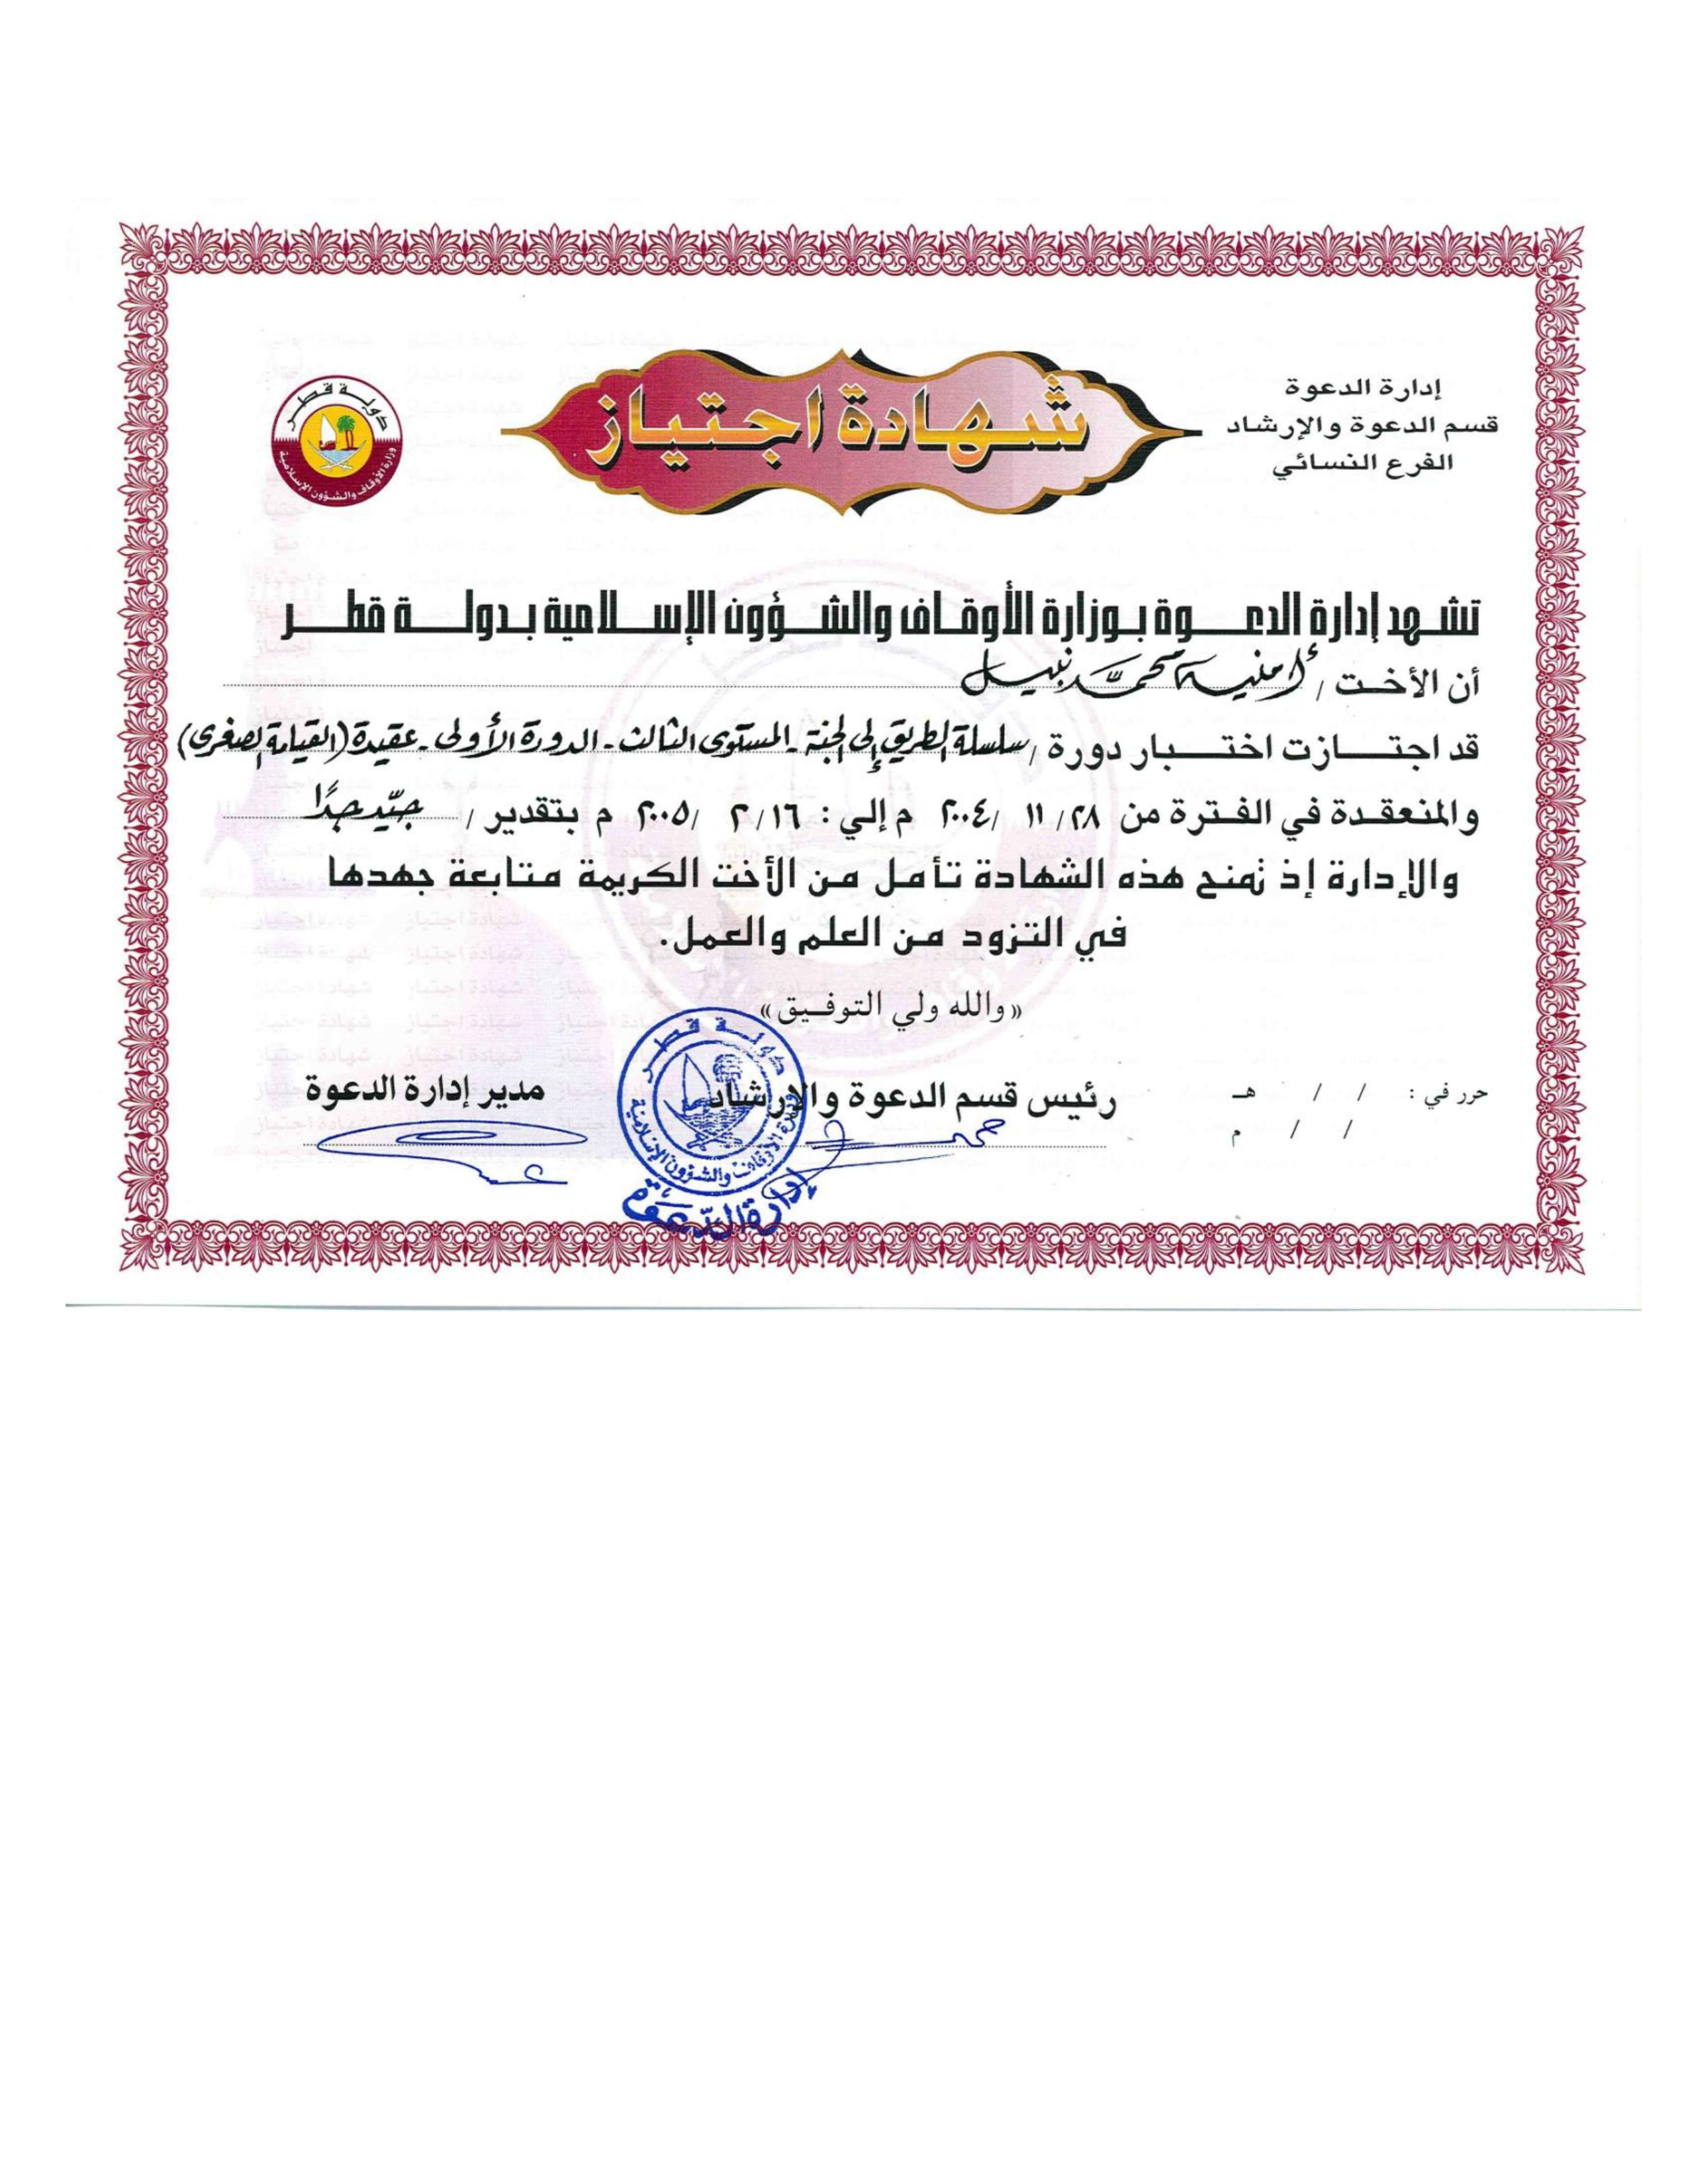 إدارة الدعوة
قسم الدعوة والإرشاد
الفرع النسائي
شهادة اجتياز
دولة قطر
وزارة الأوقاف والشؤون الإسلامية
تشهد إدارة الدعوة بوزارة الأوقاف والشؤون الإسلامية بدولة قطر
أن الأخت / أمنية محمد نبيل
قد اجتازت اختبار دورة / سلسلة الطريق إلى الجنة - المستوى الثالث - الدورة الأولى - عقيدة (القيامة الصغرى)
والمنعقدة في الفترة من ٢٨/ ١١ /٢٠٠٤ م إلي : ١٦/ ٢ /٢٠٠٥ م بتقدير / جيّد جدًا
والإدارة إذ تمنح هذه الشهادة تأمل من الأخت الكريمة متابعة جهدها
في التزود من العلم والعمل.
«والله ولي التوفيق»
حرر في : / / هـ
/ / م
رئيس قسم الدعوة والإرشاد
مدير إدارة الدعوة
دولة قطر
وزارة الأوقاف والشؤون الإسلامية
إدارة الدّعوة